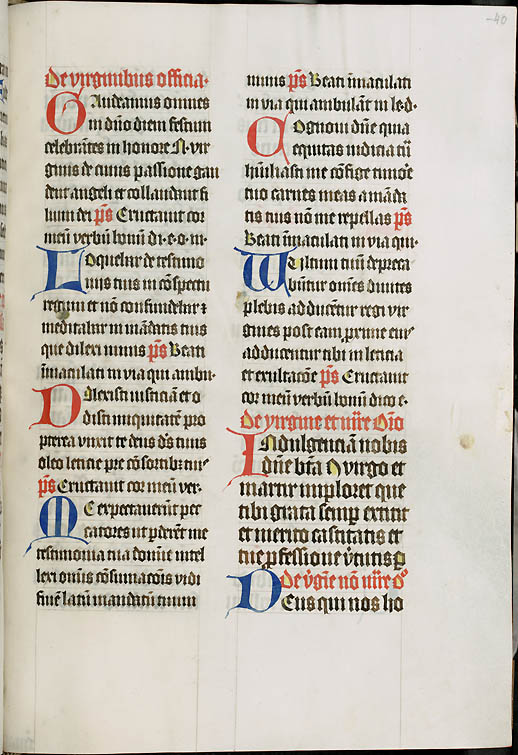 -40
De virginibus officia·
Gaudeamus omnes
in dño diem festum
celebrãtes in honore N· vir
ginis de cuius passione gau
dent angeli et collaudant fi
lium dei p̃s Eructauit cor
meũ verbũ bonũ di·e·o·m·
Loquebar de testimo
niis tuis in cõspectu
regum et nõ confundebar ⁊
meditabar in mãdatis tuis
que dilexi nimis p̃s Beati
ĩmaculati in via qui ambu·
Dilexisti iusticiã et o
disti iniquitatẽ pro
pterea vnxit te deus dˢ tuus
oleo leticie pre cõsortibꝫ tuiˢ
p̃s Eructauit cor meũ ver·
Me expectauerũt pec
catores ut pderẽt me
testimonia tua domĩe intel
lexi omĩs cõsumacõis vidi
finẽ latũ mandatũ tuum
nimis p̃s Beati ĩmaculati
in via qui ambulãt in le·d·
Cognoui dñe quia
equitas iudicia tũ
hũiliasti me cõfige timoẽ
tuo carnes meas a mãda
tis tuis nõ me repellas p̃s
Beati ĩmaculati in via qui·
Vultum tuũ depreca
bũtur omẽs diuites
plebis adducẽtur regi vir
gines post eam, prime eiuˢ
adducentur tibi in leticia
et exultacõe p̃s Eructauit
cor meũ verbũ bonũ dico e·
De virgine et mr̃e Oĩo
Indulgenciã nobis
dñe bt̃a N virgo et
martir imploret que
tibi grata semp extitit
et merito castitatis et
tue pfessione ṽtutis
De v̾gĩe nõ mr̃e oº
Deus qui nos ho